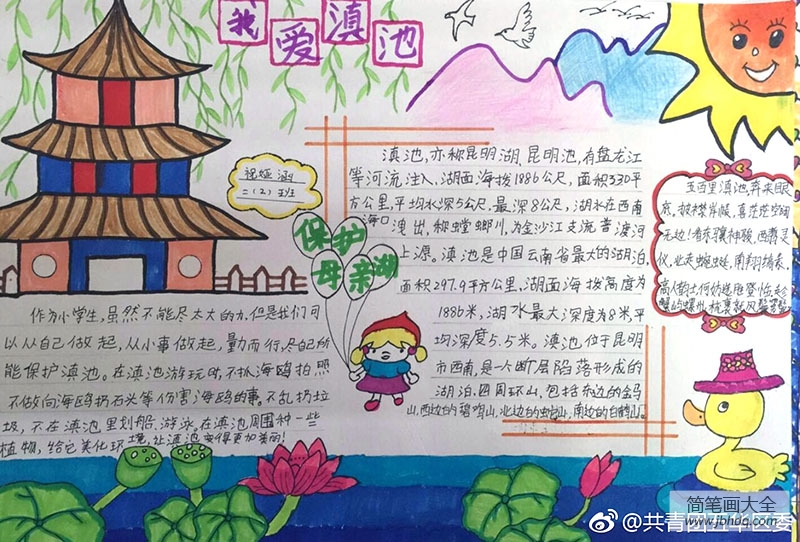 我爱滇池
祝娅涵
二(2)班
保护
母亲湖
滇池,亦称昆明湖、昆明池,有盘龙江
等河流注入,湖面海拔1886公尺,面积330平
方公里,平均水深5公尺,最深8公尺,湖水在西南
海口浅出,称螳螂川,为金沙江支流普渡河
上源。滇池是中国云南省最大的湖泊,
面积297.9平方公里,湖面海拔高度为
1886米,湖水最大深度为8米,平
均深度5.5米。滇池位于昆明
市西南,是一个断层陷落形成的
湖泊。四周环山,包括东边的金马
山,西边的碧鸡山,北边的蛇山,南边的白鹤山。
五百里滇池奔来眼
底,披襟岸帻,喜茫茫空阔
无边!看东骧神骏,西翥灵
仪,北走蜿蜒,南翔缟素。
高人韵士何妨选胜登临,趁
蟹屿螺州,梳裹就风鬟雾鬓
作为小学生,虽然不能尽太大的力,但是我们可
以从自己做起,从小事做起,勤而行,尽自己所
能保护滇池。在滇池游玩时,不抓海鸥拍照
不做向海鸥扔石头等伤害海鸥的事。不乱扔垃
圾,不在滇池里划船、游泳。在滇池周围种一些
植物,给它美化环境,让滇池变得更加美丽!
@共青团五华区委
简笔画大全
www.jbhdq.com